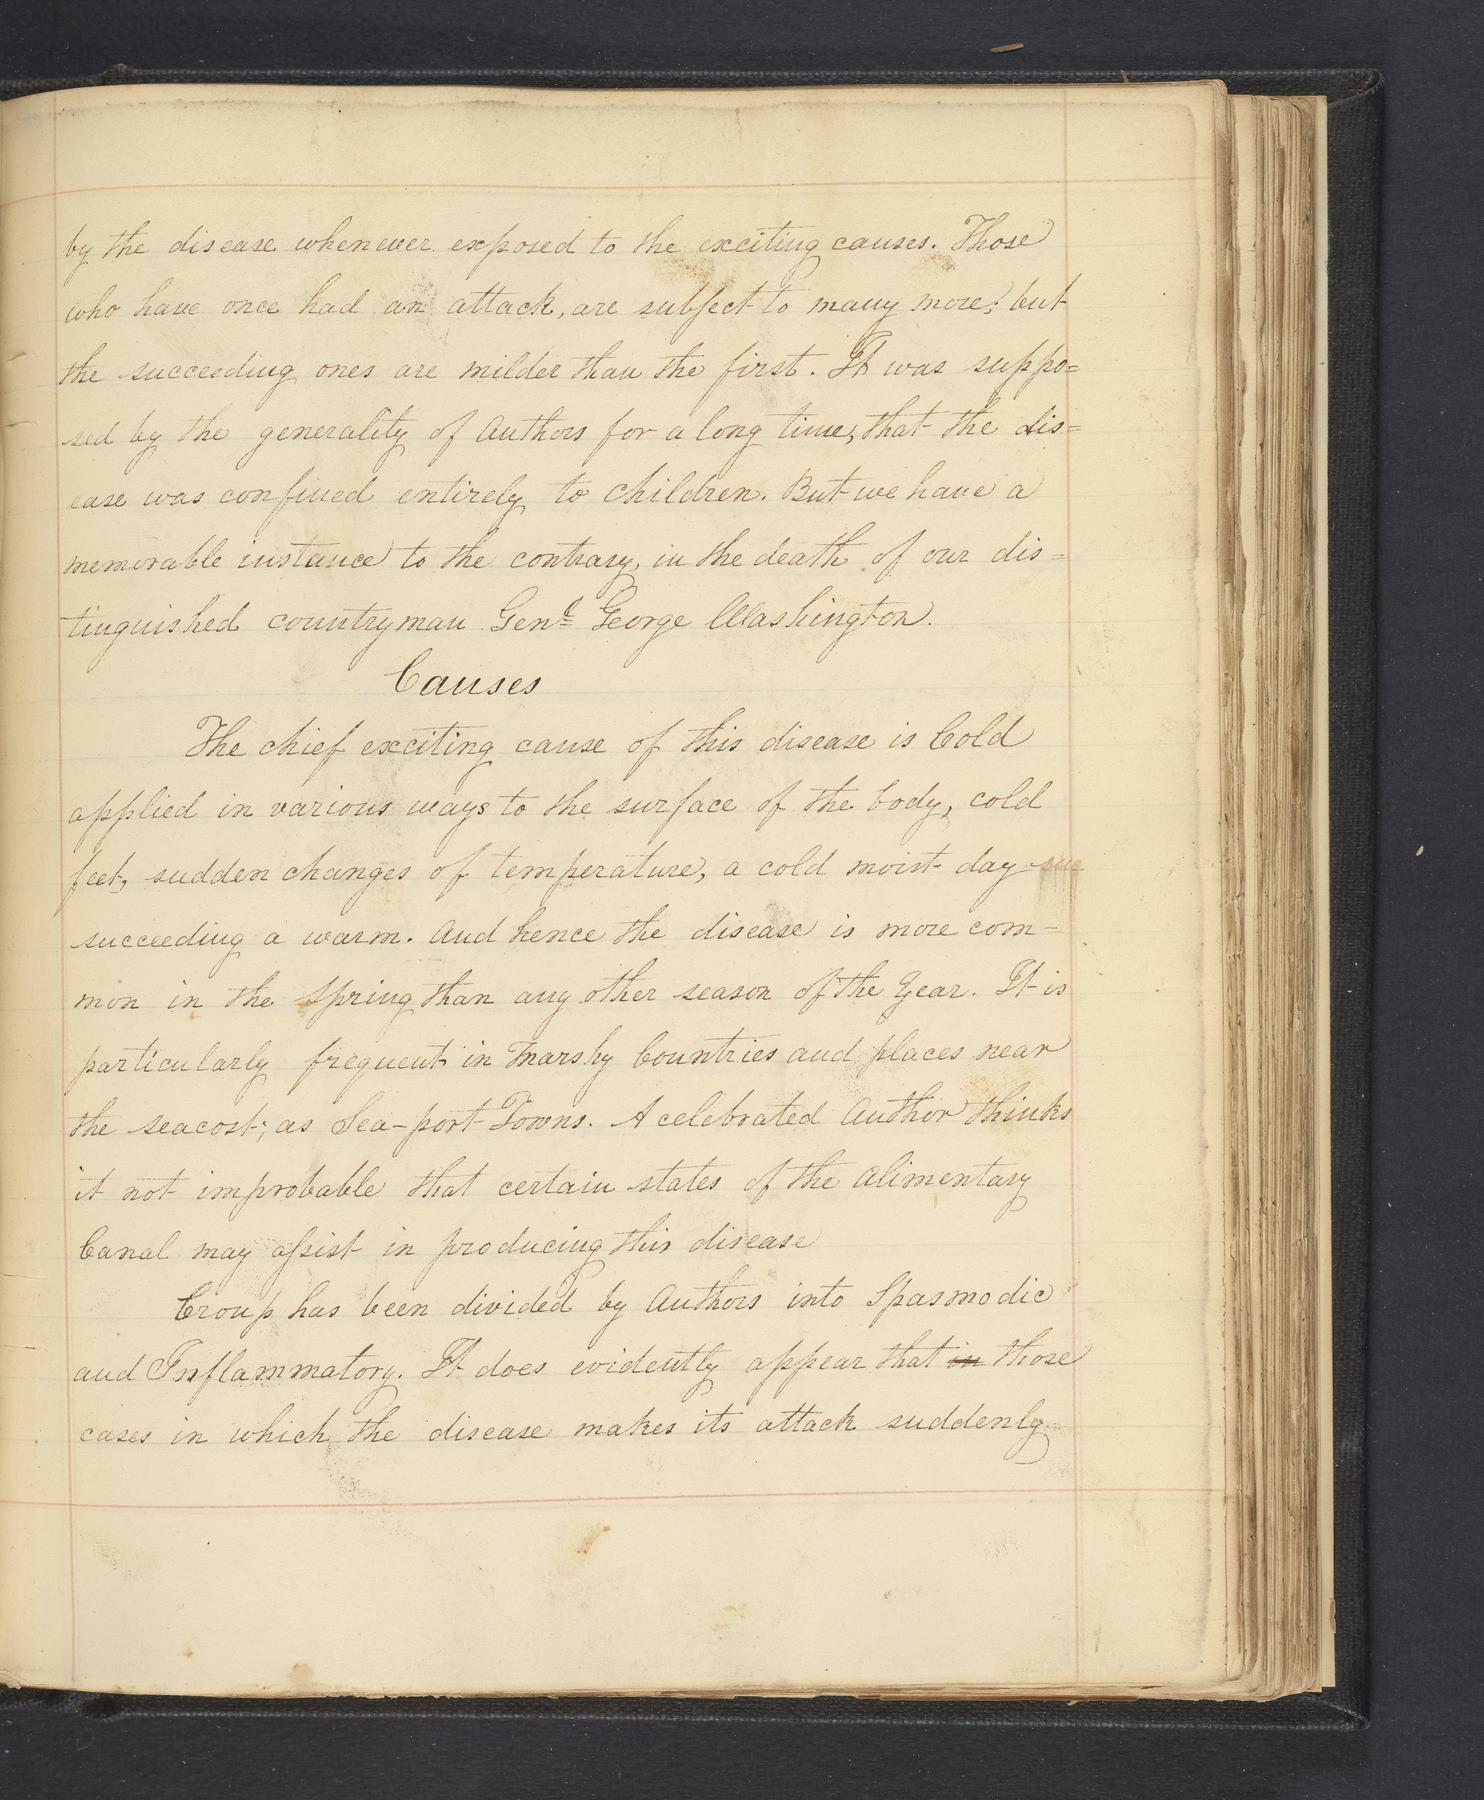 by the disease whenever exposed to the exciting causes. Those
who have once had an attack, are subject to many more; but
the succeeding ones are milder than the first. It was suppo=
sed by the generality of Authors for a long time, that the dis=
ease was confined entirely to children. But we have a
memorable instance to the contrary, in the death of our dis=
tinguished countryman Genl George Washington.
Causes
The chief exciting cause of this disease is Cold
applied in various ways to the surface of the body, cold
feet, sudden changes of temperature, a cold moist day suc
succeeding a warm. And hence the disease is more com-
mon in the Spring than any other season of the Year. It is
particularly frequent in Marshy Countries and places near
the seacost; as Sea-port Towns. A celebrated Author thinks
it not improbable that certain states of the Alimentary
Canal may assist in producing this disease
Croup has been divided by Authors into Spasmodic
and Inflammatory. It does evidently appear that in those
cases in which the disease makes its attack suddenly